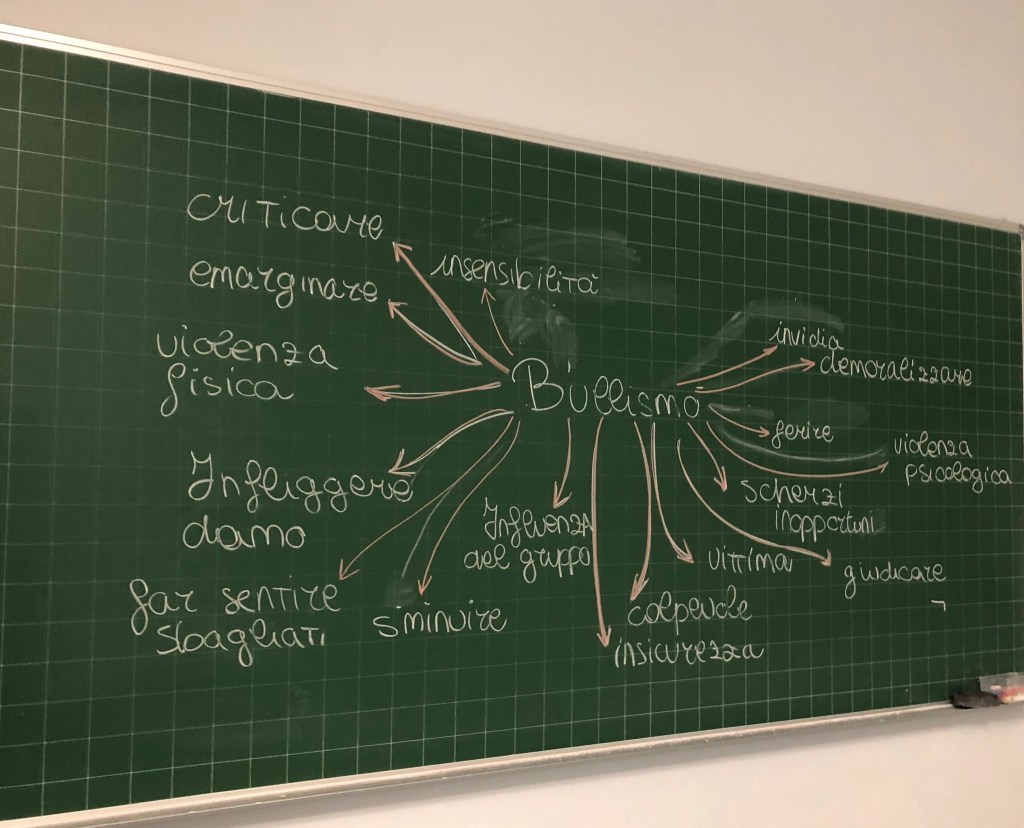 criticare
emarginare
insensibilità
violenza
fisica
Bullismo
invidia
demoralizzare
ferire
violenza
psicologica
Infliggere
danno
scherzi
inopportuni
Influenza
del gruppo
vittima
giudicare
far sentire
sbagliati
sminuire
colpevole
insicurezza